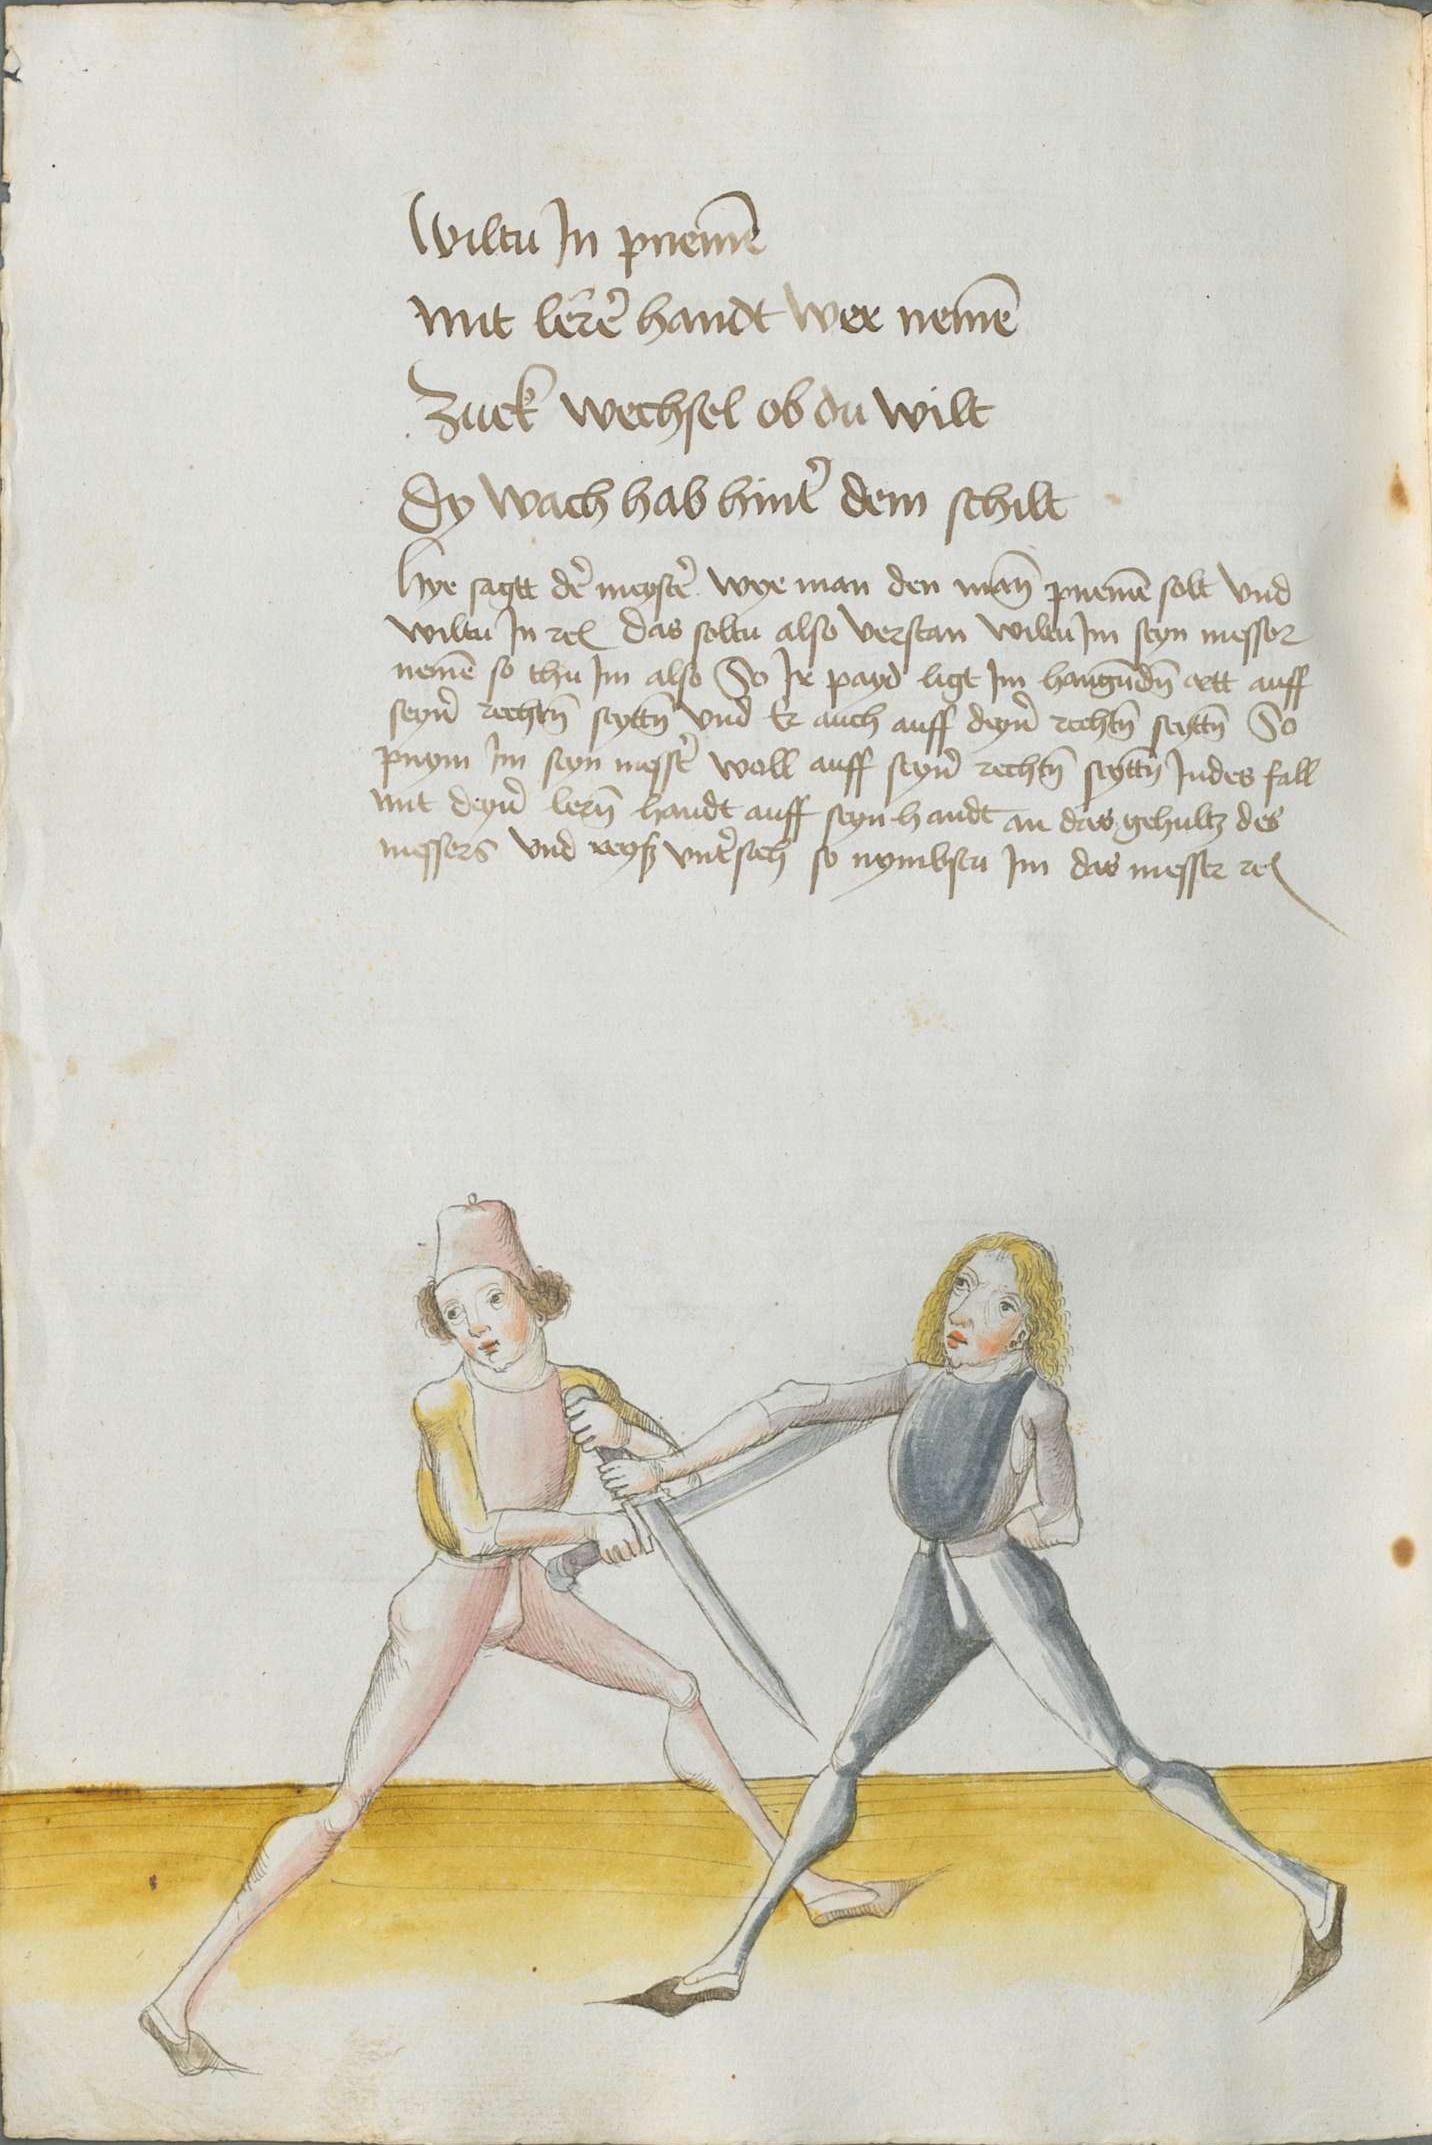 Wiltu In pnemē
mit lerer̉ handt wer nemē
Zuck wechsel ob du wilt
Dy wach hab hint̉ dem schilt
Hye sagtt der̉ meyster̉ wye man den man̄ pnemē solt Vnd
wiltu In rc̄ das soltu also verstan wiltu Im seyn messer
nemē so thu Im also So Ir payd ligt Im hangūdn̄ ortt auff
seyn̉ rechtn̄ seyttn̄ vnd Er auch auff deyn̉ rechtn̄ seyttn̄ So
pnym Im seyn messer̉ woll auff seyn̉ rechtn̄ seyttn̄ Indes fall
mit deyn̉ lern̄ handt auff seyn handt an das gehultz des
messers vnd reyß vnt̉sich so nymbstu Im das messer rc̄